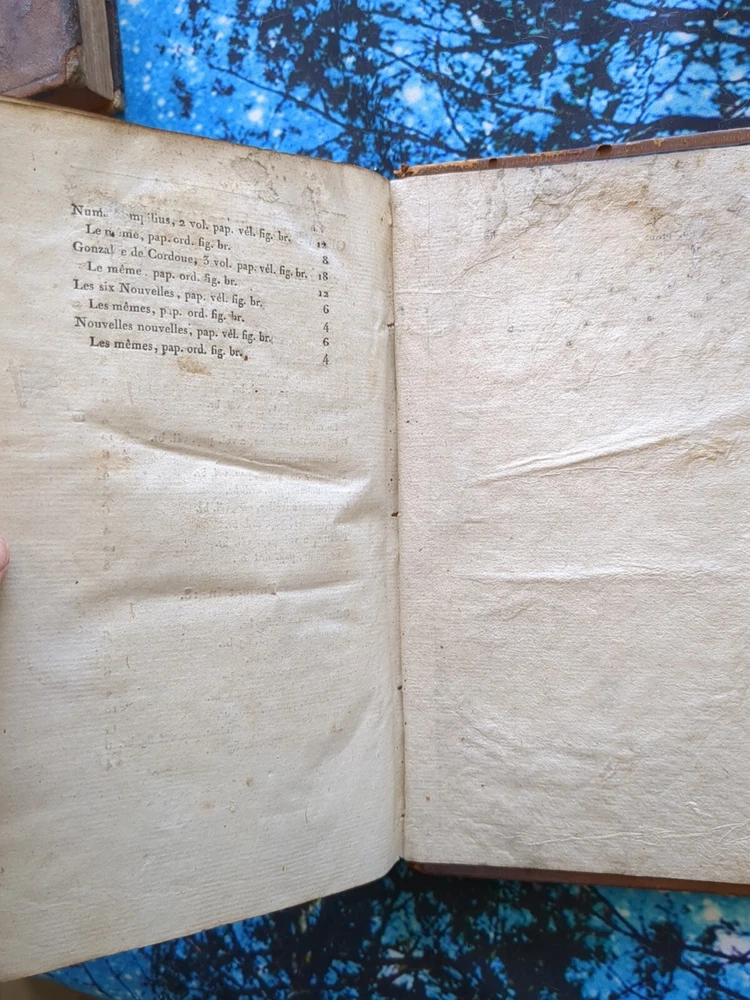 2 vol. pap. vél. fig. br. 12
Le même, pap. ord. fig. br. 8
de Cordoue, 3 vol. pap. vél. fig. br. 18
Le même pap. ord. fig. br. 12
Les six Nouvelles, pap. vél. fig. br. 6
Les mêmes, pap. ord. fig. br. 4
Nouvelles nouvelles, pap. vél. fig. br. 6
Les mêmes, pap. ord. fig. br. 4